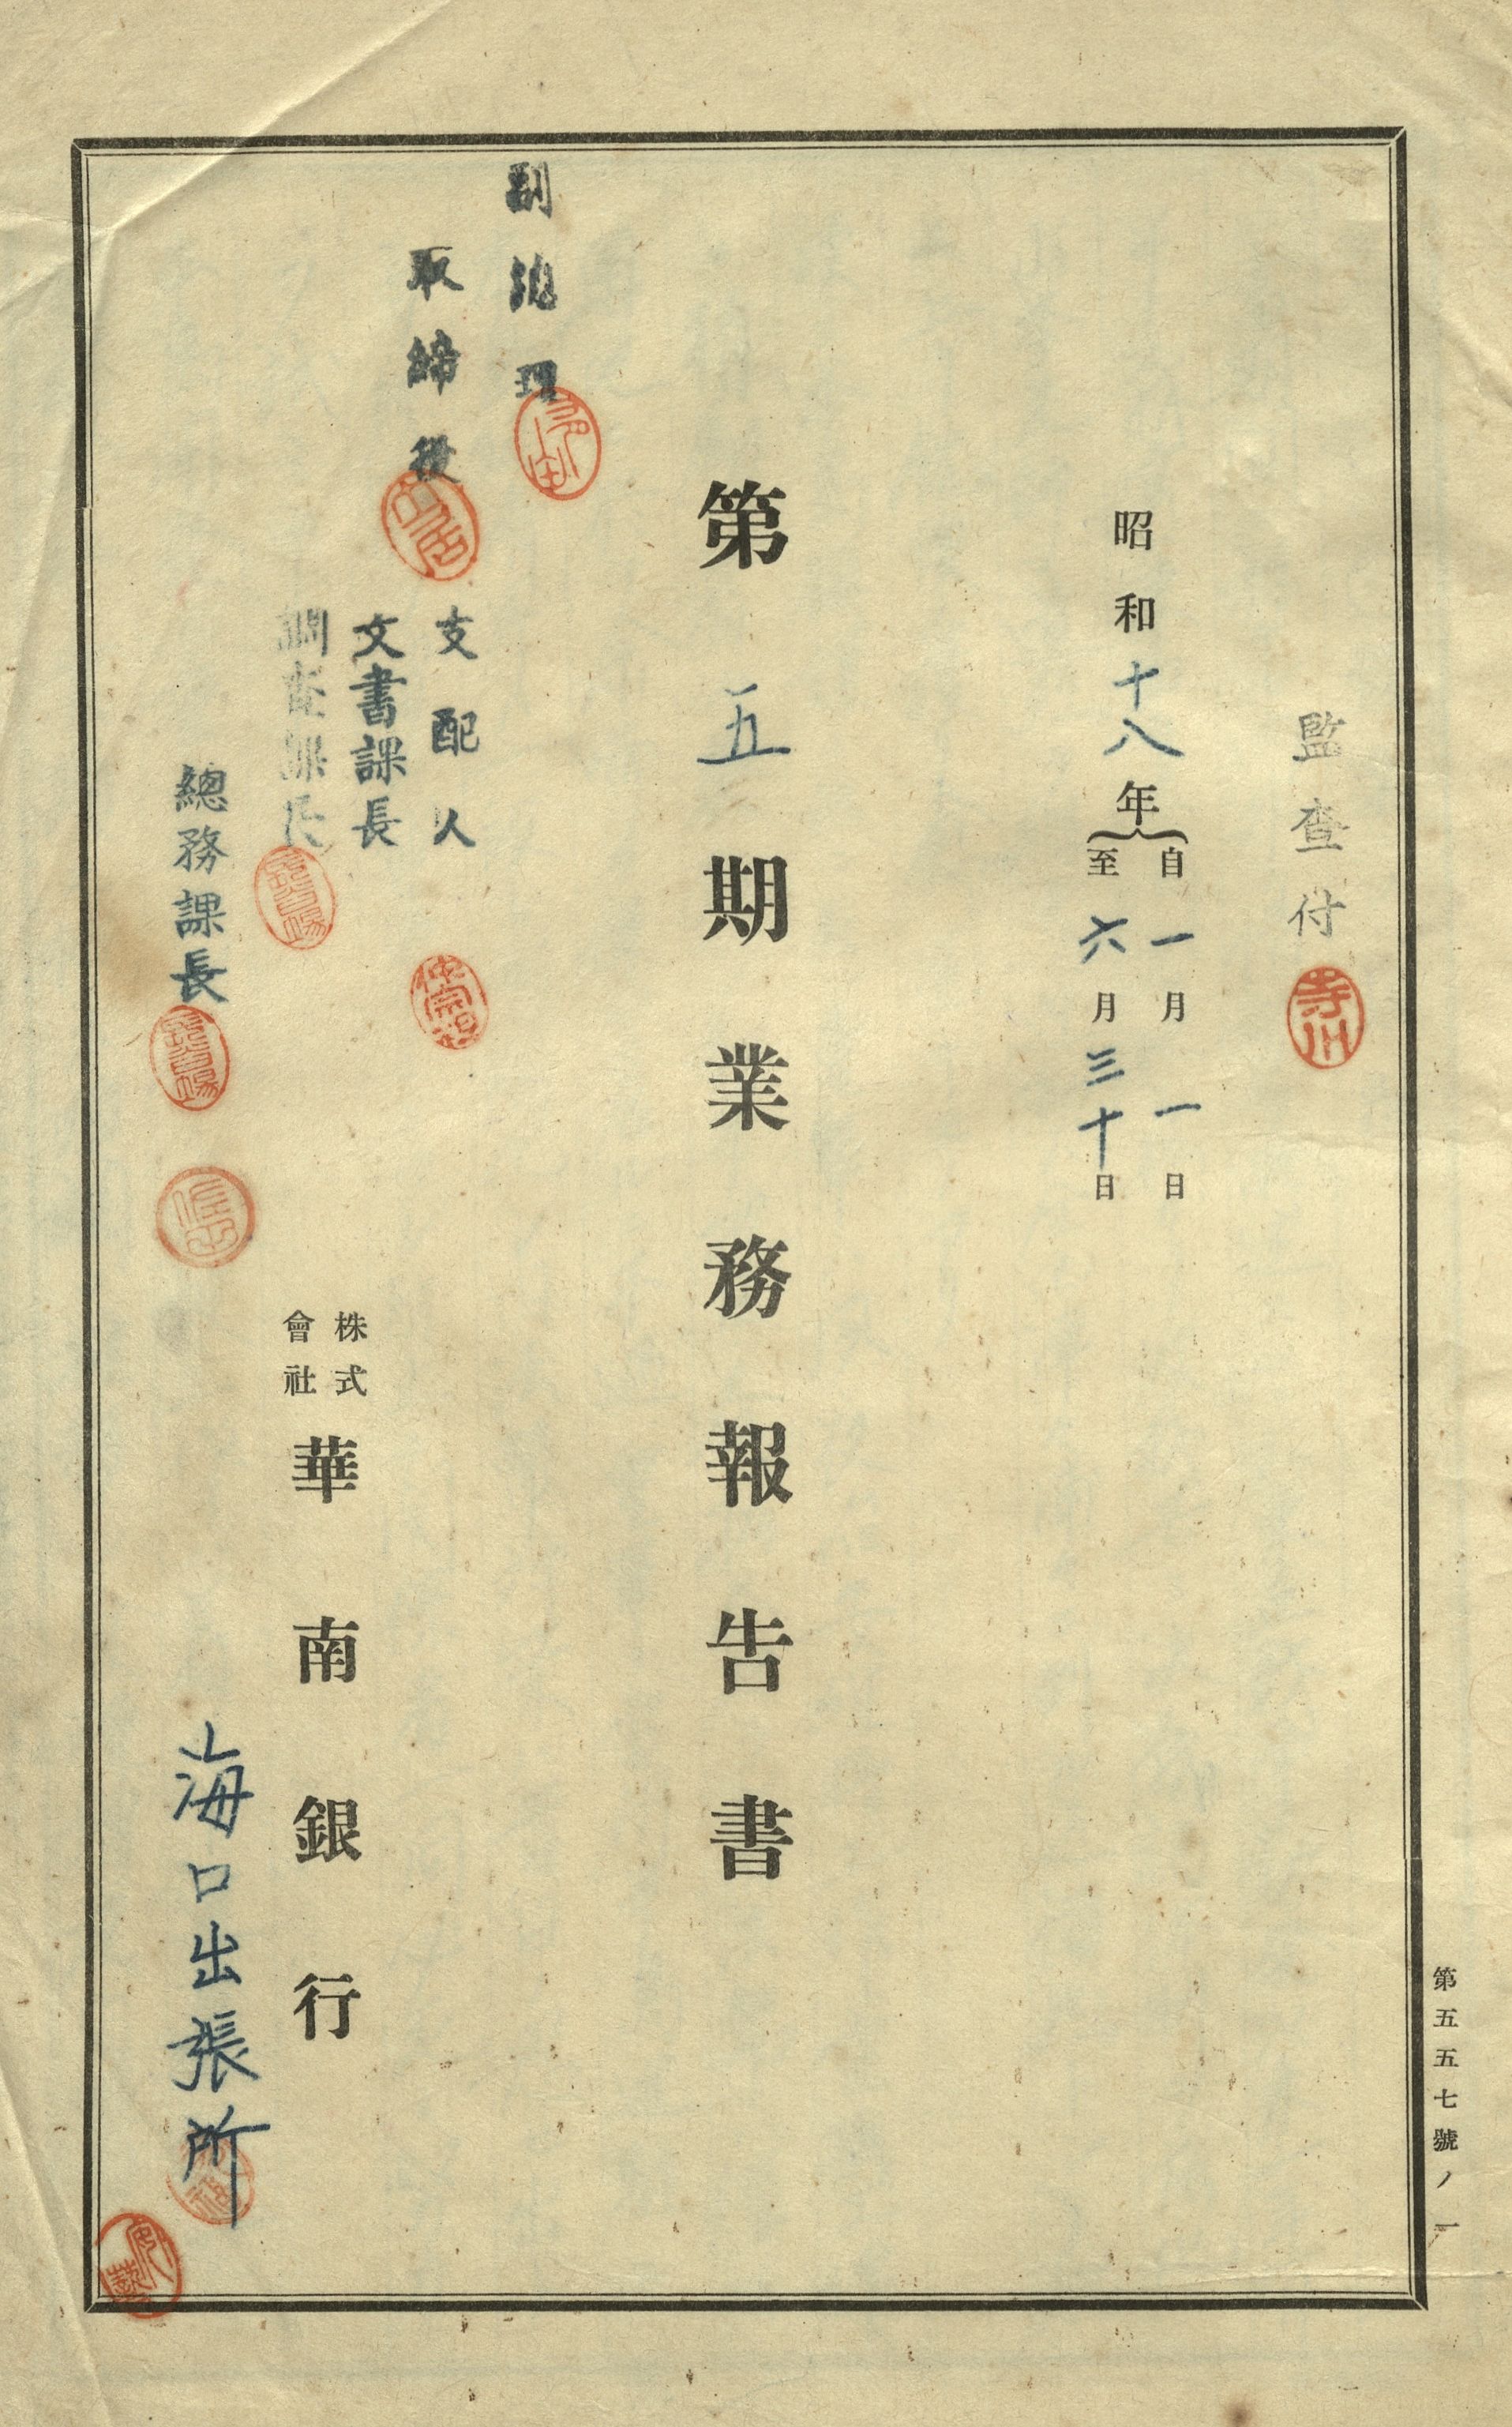 監査付
寺川
昭和十八年
自一月一日
至六月三十日
第五期業務報告書
副總理
取締役
支配人
文書課長
調査課長
總務課長
株式
會社
華南銀行
海口出張所
第五五七號ノ一